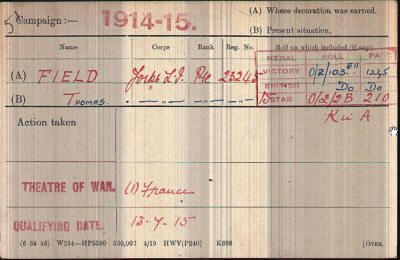 Campaign :— 1914-15. (A) Where decoration was earned.
(B) Present situation.
Name Corps Rank Reg. No. Roll on which included (if any).
MEDAL ROLL PAGE
(A) FIELD Yorks L.I. Pte 23245 VICTORY 0/2/103. B11 1225
(B) Thomas. — " — — " — — " — BRITISH Do Do
15 STAR 0/2/2B 210
Action taken K in A
THEATRE OF WAR. (1) France
QUALIFYING DATE. 13-7-15
(6 34 46) W234—HP5590 500,000 4/19 HWV(P240) K608 [P.T.O.